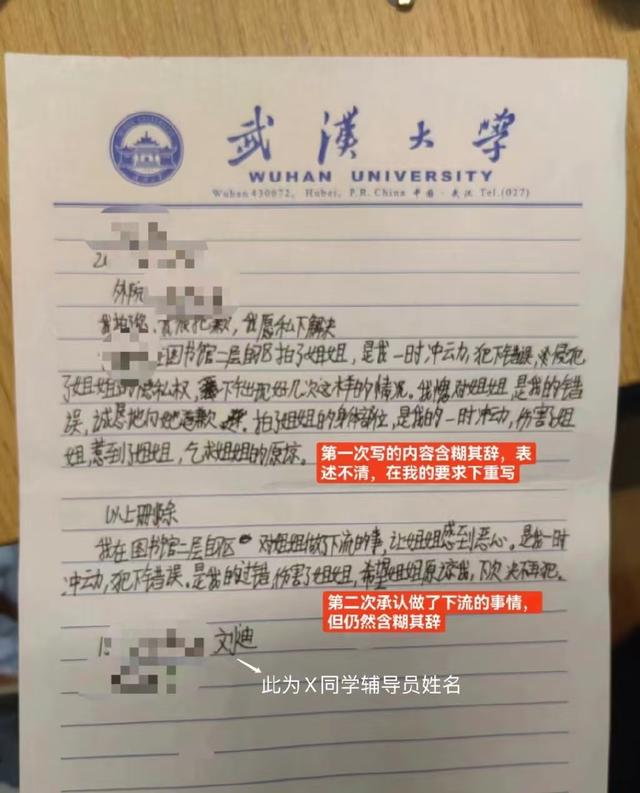 武漢大學
WUHAN UNIVERSITY
Wuhan 430072, Hubei, P.R. China 中国·武汉 Tel.(027)
外院
我愿私下解决
在图书馆二层自习区拍了姐姐,是我一时冲动,犯下错误,侵犯
了姐姐的隐私权,出现好几次这样的情况。我愧对姐姐,是我的错
误,诚恳地向她道歉,拍了姐姐的身体部位,是我的一时冲动,伤害了姐
姐,惹到了姐姐,乞求姐姐的原谅。
第一次写的内容含糊其辞,表
述不清,在我的要求下重写
以上删除
我在图书馆二层自习区对姐姐做了下流的事,让姐姐感到恶心。是我一时
冲动,犯下错误。是我的过错,伤害了姐姐,希望姐姐原谅我,下次决不再犯。
第二次承认做了下流的事情,
但仍然含糊其辞
刘迪
此为X同学辅导员姓名